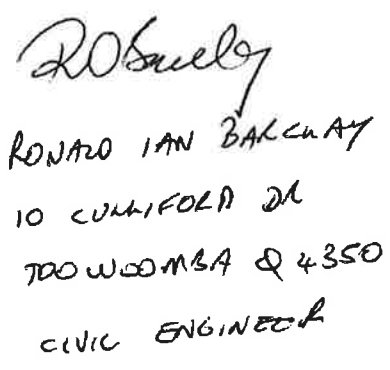 RONALD IAN BARCLAY
10 CULLIFORD DR
TOOWOOMBA Q 4350
CIVIC ENGINEER